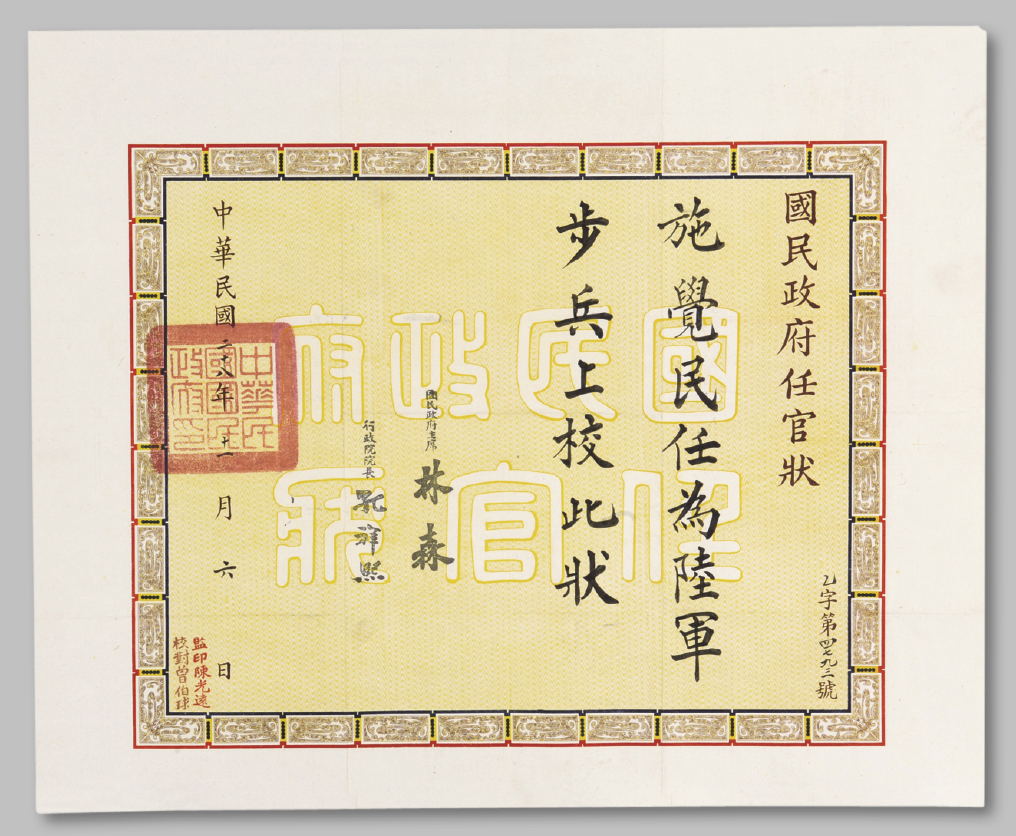 國民政府任官狀
乙字第四七九三號
施覺民任為陸軍
步兵上校此狀
國民政府主席 林森
行政院院長 孔祥熙
中華民國二十八年十一月六日
中華民國國民政府之印
監印陳光遠
校對曾伯球
國民政府
任官狀